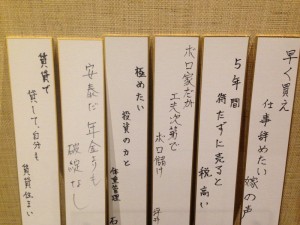 早く買い
仕事辞めたい
嫁の声
5年間
待たずに売ると
税高い
ボロ家だが
工夫次第で
ボロ儲け
極めたい
投資の力と
安泰だ
年金よりも
破綻なし
賃貸で
貸して、自分も
賃貸住まい